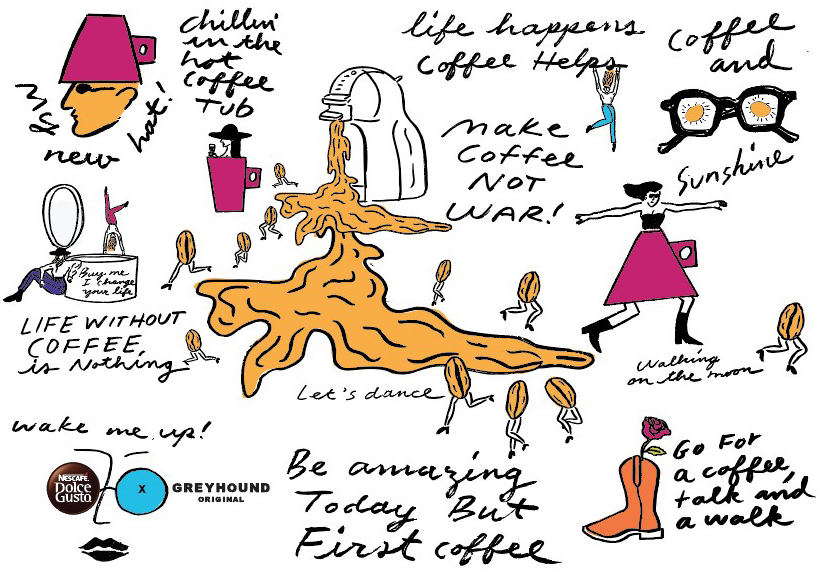 My
new
hat!
chillin'
in the
hot
coffee
Tub
life happens
Coffee Helps
Coffee
and
Sunshine
make
Coffee
NOT
WAR!
Buy me
I change
your life
LIFE WITHOUT
COFFEE
is Nothing
Let's dance
Walking
on the moon
wake me up!
NESCAFÉ
DOLCE
GUSTO
X
GREYHOUND
ORIGINAL
Be amazing
Today But
First coffee
Go For
a coffee,
talk and
a walk